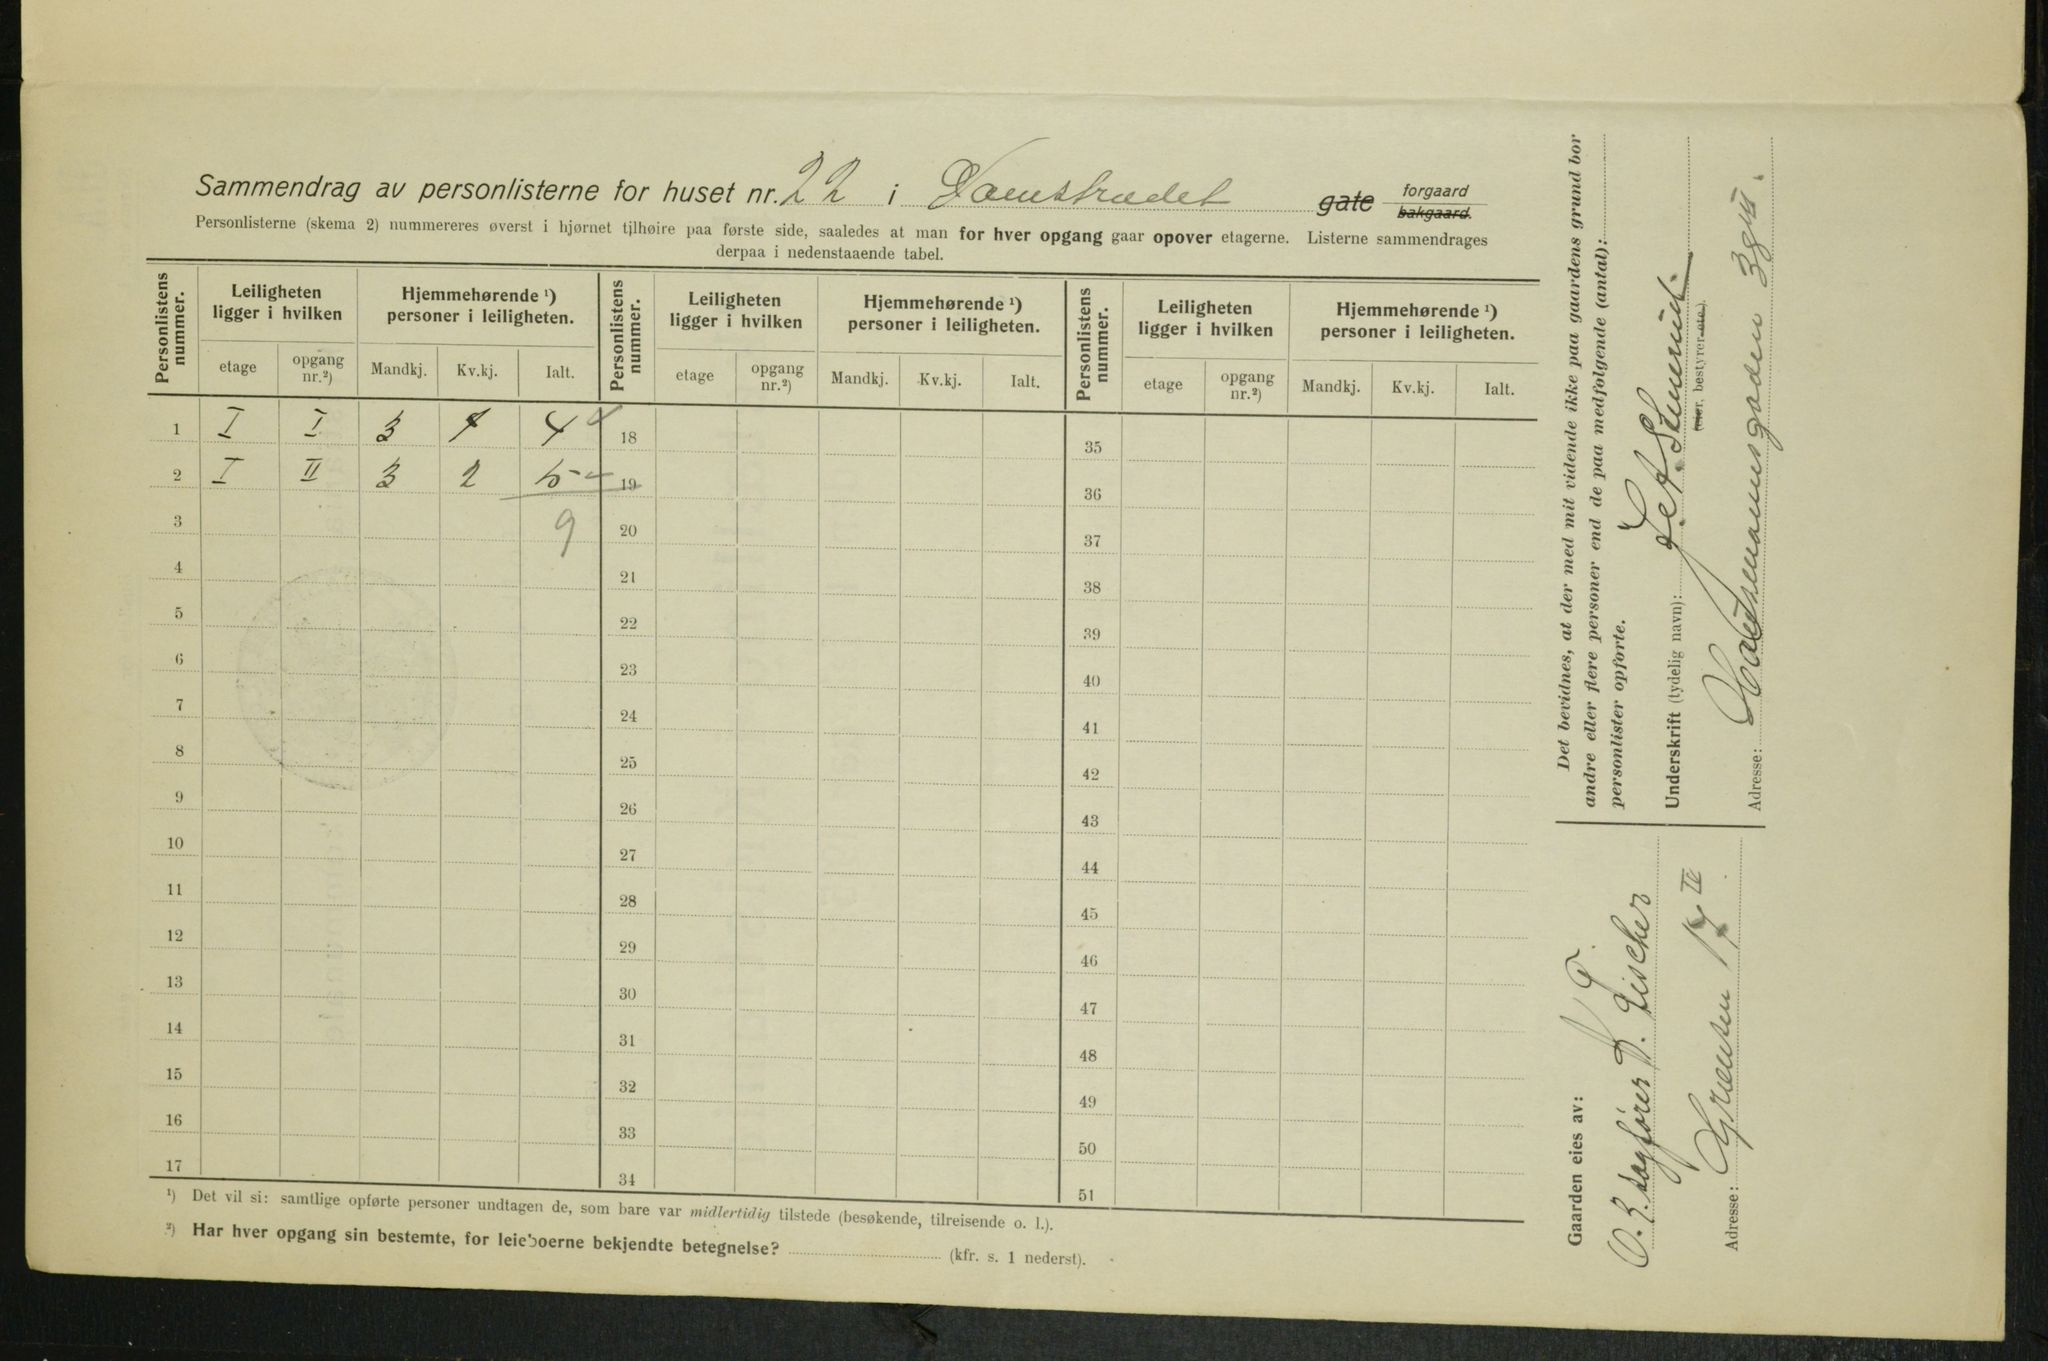 Sammendrag av personlisterne for huset nr. 22 i Damstrædet gate forgaard bakgaard.
Personlisterne (skema 2) nummereres øverst i hjørnet tilhøire paa første side, saaledes at man for hver opgang gaar opover etagerne. Listerne sammendrages
derpaa i nedenstaaende tabel.
Personlistens nummer. Leiligheten ligger i hvilken Hjemmehørende ¹) personer i leiligheten. Personlistens nummer. Leiligheten ligger i hvilken Hjemmehørende ¹) personer i leiligheten. Personlistens nummer. Leiligheten ligger i hvilken Hjemmehørende ¹) personer i leiligheten.
etage opgang nr.²) Mandkj. Kv.kj. Ialt. etage opgang nr.²) Mandkj. Kv.kj. Ialt. etage opgang nr.²) Mandkj. Kv.kj. Ialt.
1 I I 3 1 4 18 35
2 I II 3 2 5 19 36
3 9 20 37
4 21 38
5 22 39
6 23 40
7 24 41
8 25 42
9 26 43
10 27 44
11 28 45
12 29 46
13 30 47
14 31 48
15 32 49
16 33 50
17 34 51
¹) Det vil si: samtlige opførte personer undtagen de, som bare var midlertidig tilstede (besøkende, tilreisende o. l.).
²) Har hver opgang sin bestemte, for leieboerne bekjendte betegnelse? (kfr. s. 1 nederst).
Det bevidnes, at der med mit vidende ikke paa gaardens grund bor
andre eller flere personer end de paa medfølgende (antal):
personlister opførte.
Underskrift (tydelig navn):
(eier, bestyrer etc.)
Adresse: Hausmannsgaden
Gaarden eies av:
O. r. sagfører K. Fischer
Adresse: Grænsen 17 IV